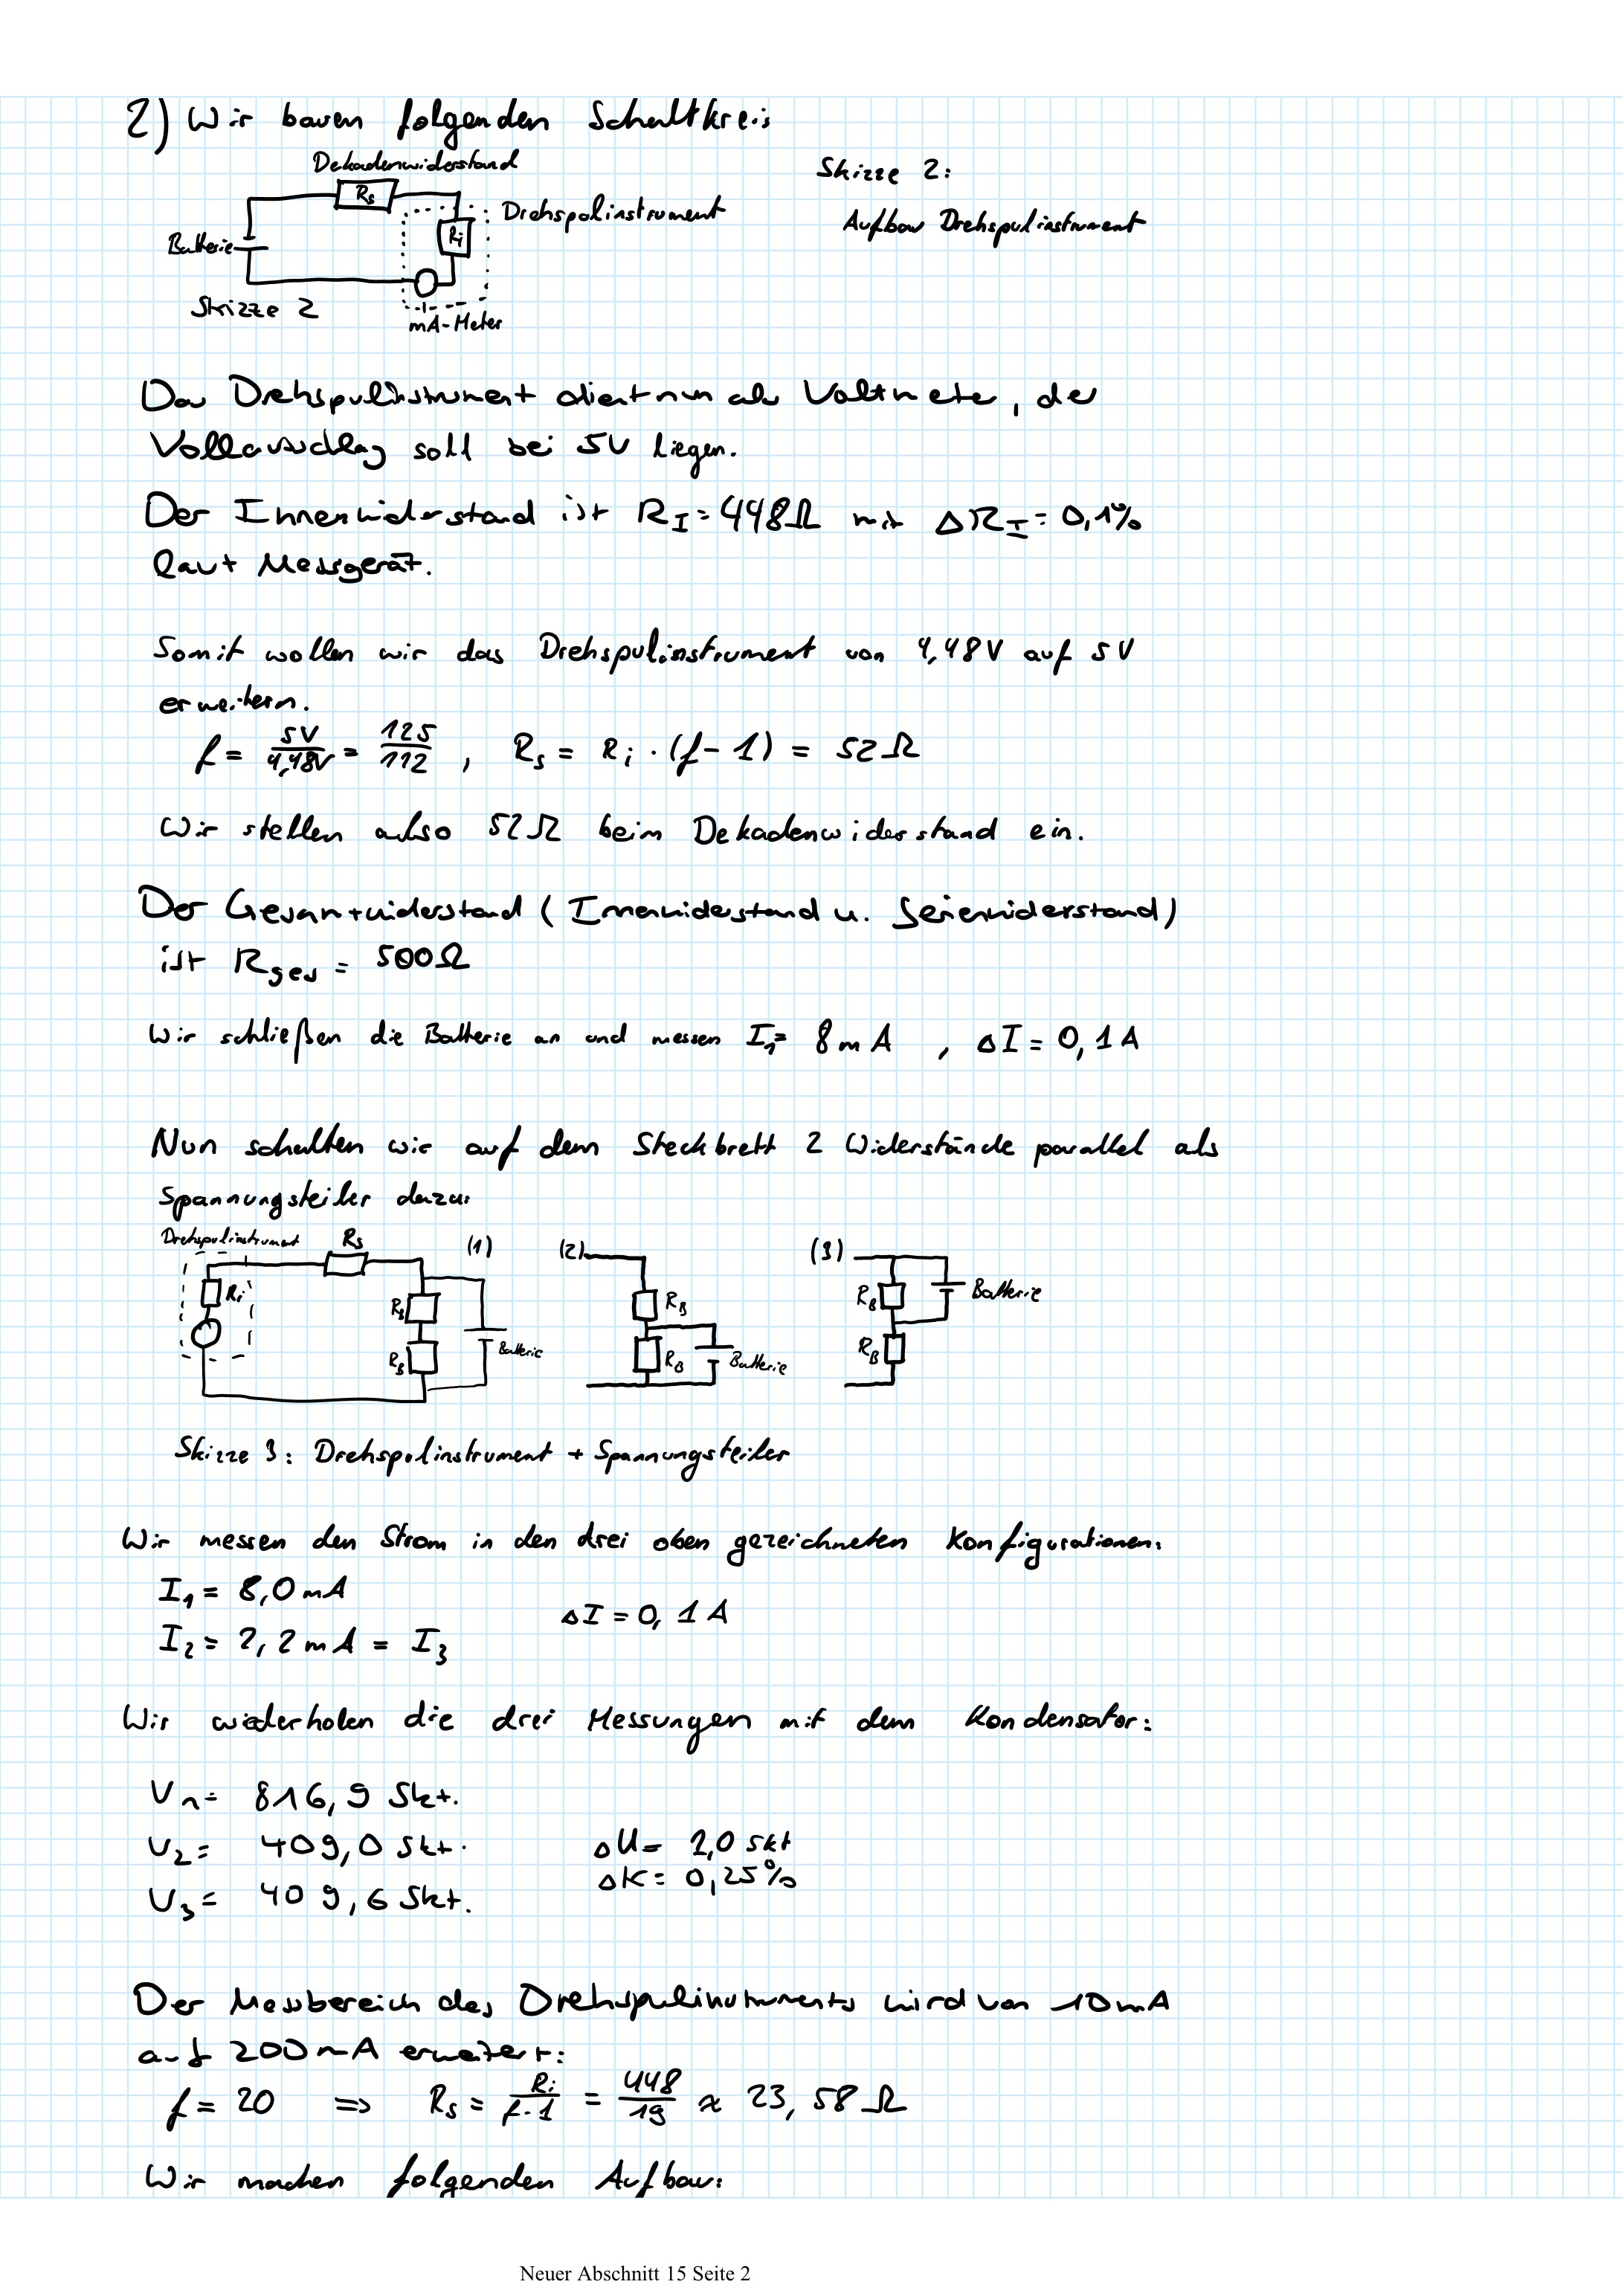 2) Wir bauen folgenden Schaltkreis
Dekadenwiderstand
Rs
Drehspulinstrument
Ri
Batterie
mA-Meter
Skizze 2
Skizze 2:
Aufbau Drehspulinstrument
Das Drehspulinstrument dient nun als Voltmeter, der
Vollausschlag soll bei 5V liegen.
Der Innenwiderstand ist R_I = 448Ω mit ΔR_I = 0,1%
laut Messgerät.
Somit wollen wir das Drehspulinstrument von 4,48V auf 5V
erweitern.
f = 5V/4,48V = 125/112 , R_s = R_i · (f-1) = 52 Ω
Wir stellen also 52Ω beim Dekadenwiderstand ein.
Der Gesamtwiderstand (Innenwiderstand u. Serienwiderstand)
ist R_ges = 500Ω
Wir schließen die Batterie an und messen I_1= 8mA , ΔI = 0,1A
Nun schalten wir auf dem Steckbrett 2 Widerstände parallel als
Spannungsteiler dazu:
Drehspulinstrument
Rs
Ri
(1)
R_B
R_B
Batterie
(2)
R_B
R_B
Batterie
(3)
R_B
R_B
Batterie
Skizze 3: Drehspulinstrument + Spannungsteiler
Wir messen den Strom in den drei oben gezeichneten Konfigurationen:
I_1 = 8,0mA
I_2 = 2,2mA = I_3
ΔI = 0,1A
Wir wiederholen die drei Messungen mit dem Kondensator:
U_1= 816,9 Skt.
U_2= 409,0 Skt.
U_3= 409,6 Skt.
ΔU= 2,0 skt
ΔK= 0,25%
Der Messbereich des Drehspulinstruments wird von 10mA
auf 200mA erweitert:
f = 20 ⇒ R_s = R_i/f-1 = 448/19 ≈ 23,58 Ω
Wir machen folgenden Aufbau:
Neuer Abschnitt 15 Seite 2